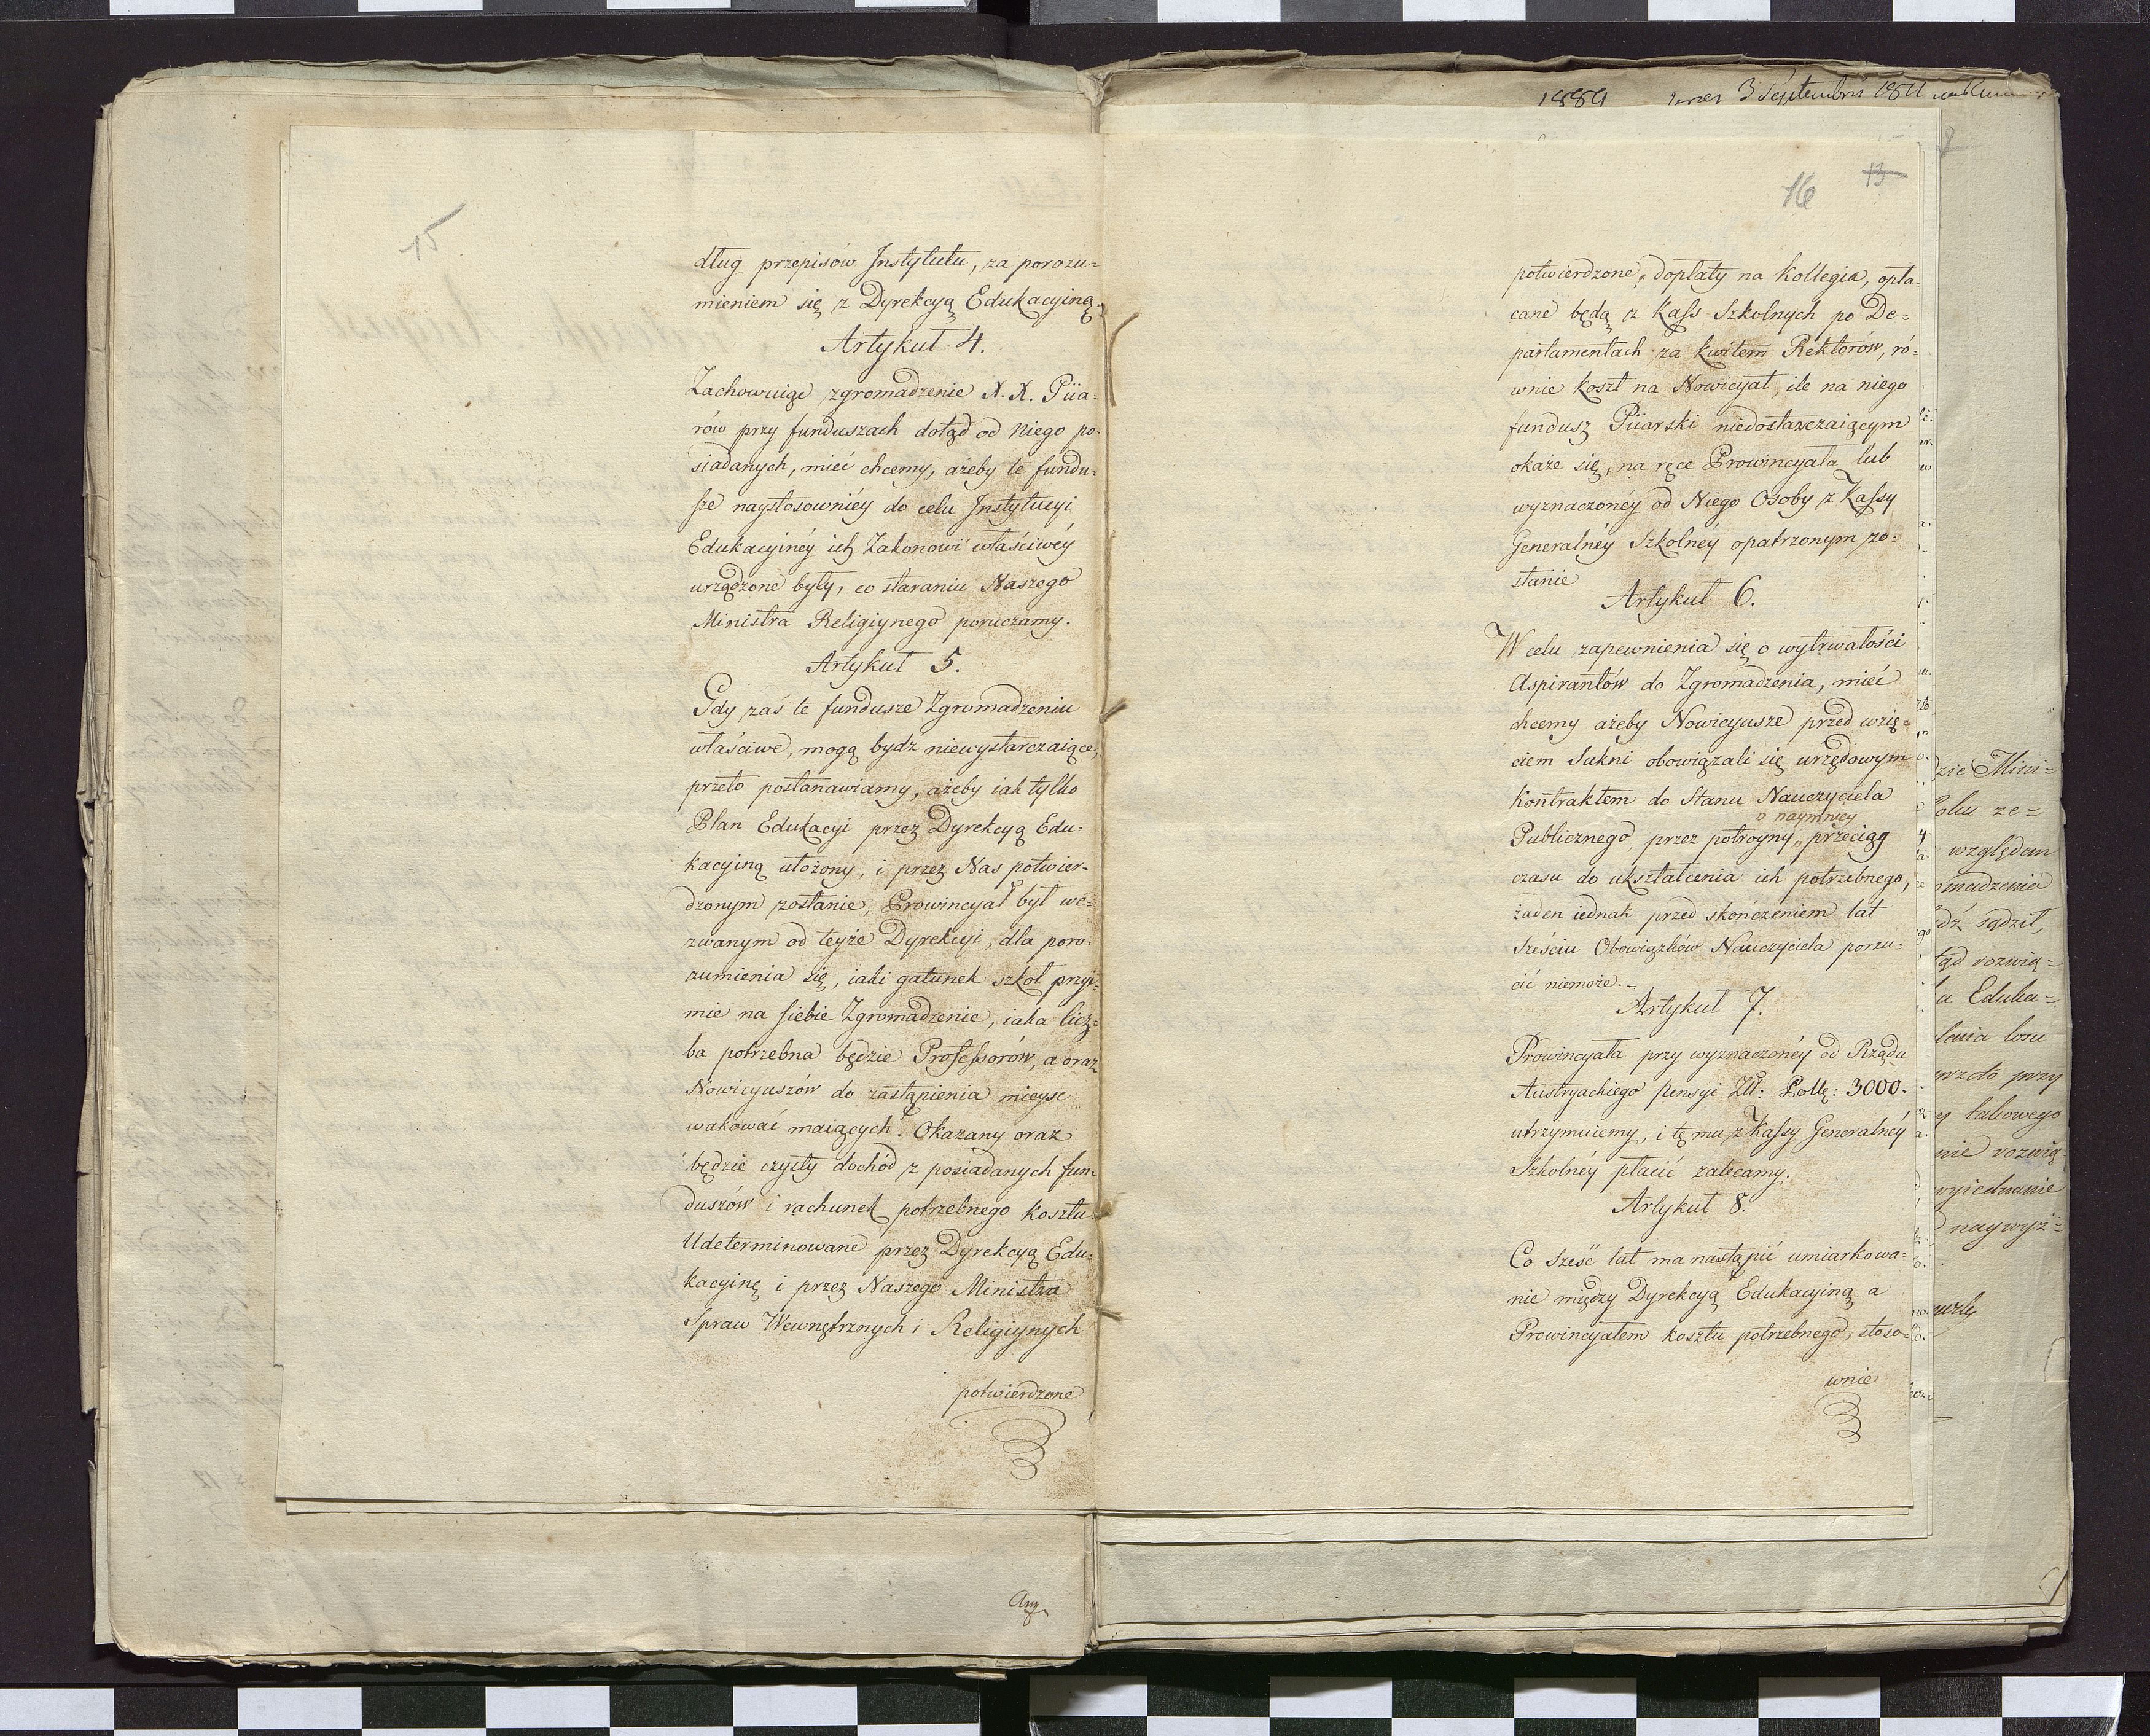 15
dług przepisów Instytutu, za porozu=
mieniem się z Dyrekcyą Edukacyiną.
Artykuł 4.
Zachowuiąc zgromadzenie X. X. Piia=
rów przy funduszach dotąd od Niego po=
siadanych, mieć chcemy, ażeby te fundu=
sze naystosowniéy do celu Instytucyi
Edukacyinéy ich Zakonowi właściwéy
urządzone były, co staraniu Naszego
Ministra Religiynego poruczamy.
Artykuł 5.
Gdy zaś te fundusze Zgromadzeniu
właściwe, mogą bydź niewystarczaiące,
przeto postanawiamy, ażeby iak tylko
Plan Edukacyi przez Dyrekcyą Edu=
kacyiną ułożony, i przez Nas potwier=
dzonym zostanie, Prowincyał był we=
zwanym od teyże Dyrekcyi, dla poro=
zumienia się, iaki gatunek szkół przyi=
mie na siebie Zgromadzenie, iaka licz=
ba potrzebna będzie Professorów, a oraz
Nowicyuszów do zastąpienia mieysc
wakować maiących. Okazany oraz
będzie czysty dochód z posiadanych fun=
duszów i rachunek potrzebnego kosztu.
Udeterminowane przez Dyrekcyą Edu=
kacyinę i przez Naszego Ministra
Spraw Wewnętrznych i Religiynych
potwierdzone
1889 3 Septembris 1811
16 13
potwierdzone, dopłaty na Kollegia, opła=
cane będą z Kass Szkolnych po De=
partamentach za kwitem Rektorów, ró=
wnie koszt na Nowicyat, ile na niego
fundusz Piiarski niedostarczaiącym
okaże się, na ręce Prowincyała lub
wyznaczonéy od Niego Osoby z Kassy
Generalnéy Szkolnéy opatrzonym zo=
stanie
Artykuł 6.
W celu zapewnienia się o wytrwałości
Aspirantów do Zgromadzenia, mieć
chcemy ażeby Nowicyusze przed wzię=
ciem Sukni obowiązali się urzędowym
Kontraktem do Stanu Nauczyciela
naymniey
Publicznego, przez potroyny przeciąg
czasu do ukształcenia ich potrzebnego,
żaden iednak przed skończeniem lat
sześciu Obowiązków Nauczyciela porzu=
cić niemoże.
Artykuł 7.
Prowincyała przy wyznaczonéy od Rządu
Austryackiego pensyi Zł: Pollę: 3000.
utrzymuiemy, i tę mu z Kassy Generalnéy
Szkolnéy płacić zalecamy.
Artykuł 8.
Co sześć lat ma nastąpić umiarkowa=
nie między Dyrekcyą Edukacyiną a
Prowincyałem kosztu potrzebnego, stoso=
wnie
dzie Mini=
ze=
względem
sądził,
rozwią=
Eduka=
losu
przeto przy
takowego
nie rozwią=
wyiednanie
naywyż=